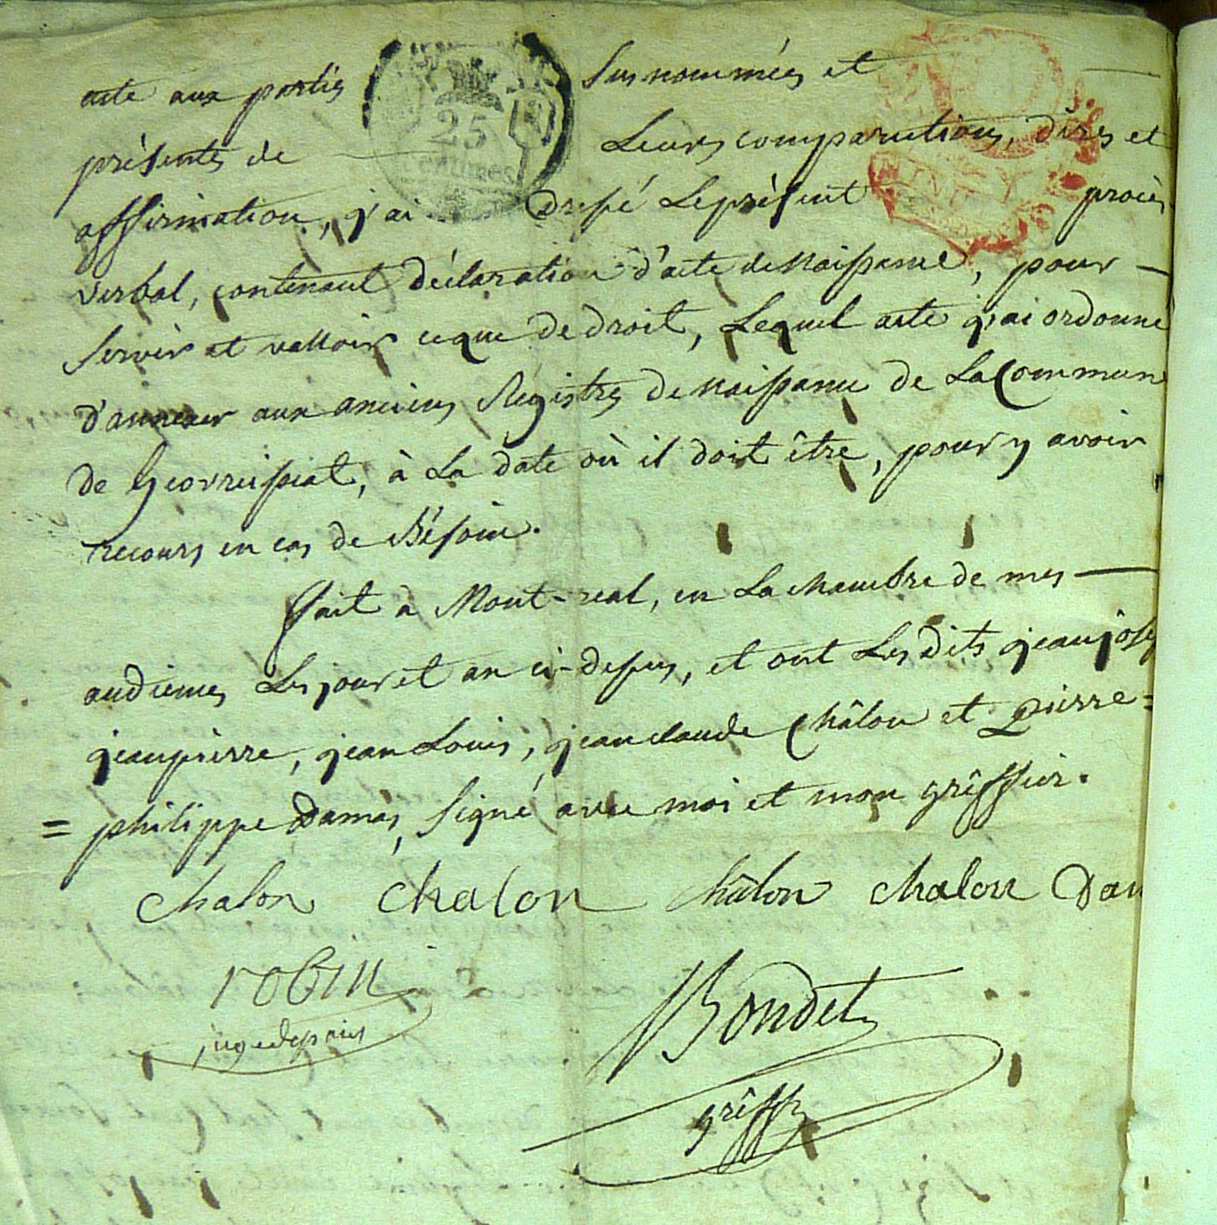 acte aux parties susnommées et
présentes de Leurs comparutions, dires et
affirmation, j'ai dressé Le présent procès
verbal, contenant déclaration d'acte de Naissance, pour
servir et valloir ce que de droit, Lequel acte j'ai ordonné
d'annexer aux anciens Registres de Naissance de La Commune
de Geovreissiat, à La date où il doit être, pour y avoir
recours en cas de Bésoin.
fait à Mont-real, en La chambre de mes
audiences Les jour et an ci-dessus, et ont Les dits jean joseph
jean pierre, jean Louis, jean claude Châlon et Pierre=
=philippe Damas, signé avec moi et mon grêffier.
Chalon Chalon Châlon chalon Dam
robin Bondet
juge de paix
grêffr
25
centimes